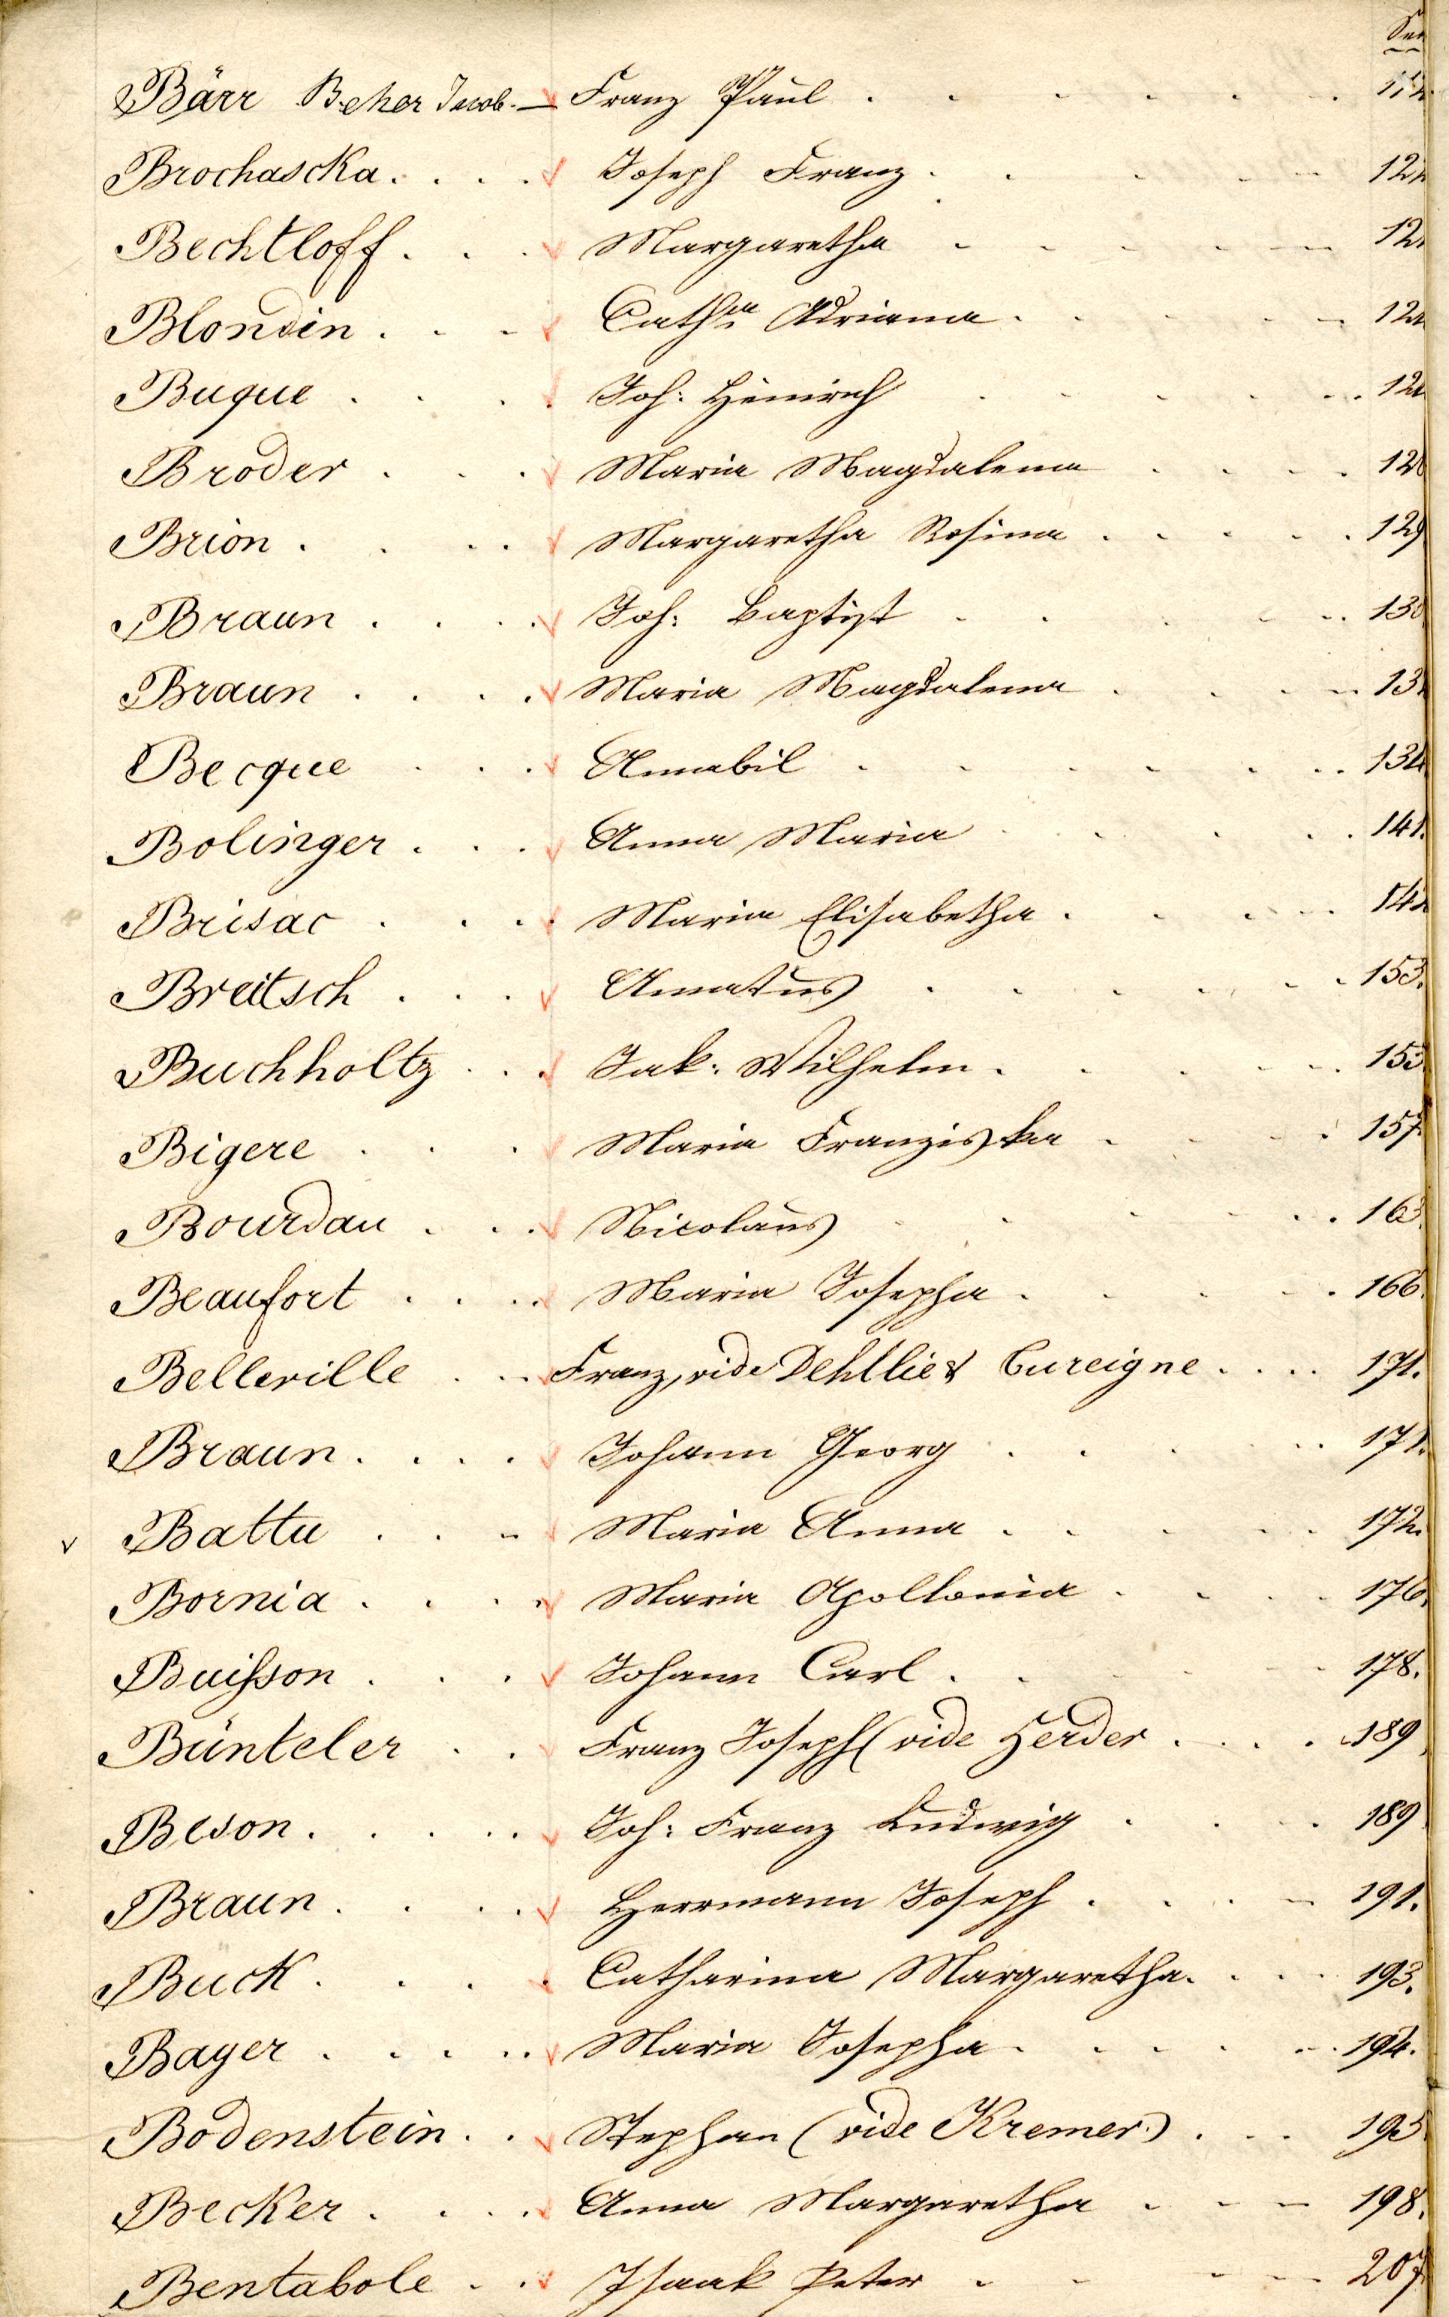 Bärr Beher Jacob. — Franz Paul
Brochascka Joseph Franz
Bechtloff Margaretha
Blondin Cathna Adriana
Buque Joh: Heinrich
Broder Maria Magdalena
Brion Margaretha Rosina 129
Braun Joh: Baptist
Braun Maria Magdalena
Becque Annabil
Bolinger Anna Maria 141.
Brisac Maria Elisabetha
Breitsch Amatus 153.
Buchholtz Jak: Wilhelm
Bigere Maria Franziska 157
Bourdau Nicolaus 163
Beaufort Maria Josepha 166.
Belleville Franz, vide Dehllie & Cureigne 171.
Braun Johann Georg 171.
Battu Maria Anna 172.
Bornia Maria Apollonia 176.
Buisson Johann Carl 178.
Bünteler Franz Joseph (vide Herder 189
Beson Joh: Franz Ludwig 189
Braun Herrmann Joseph 191.
Buck Catharina Margaretha 193.
Bayer Maria Josepha 194.
Bodenstein Stephan (vide Kremer.) 195
Becker Anna Margaretha 198.
Bentabole Isaak Peter 207